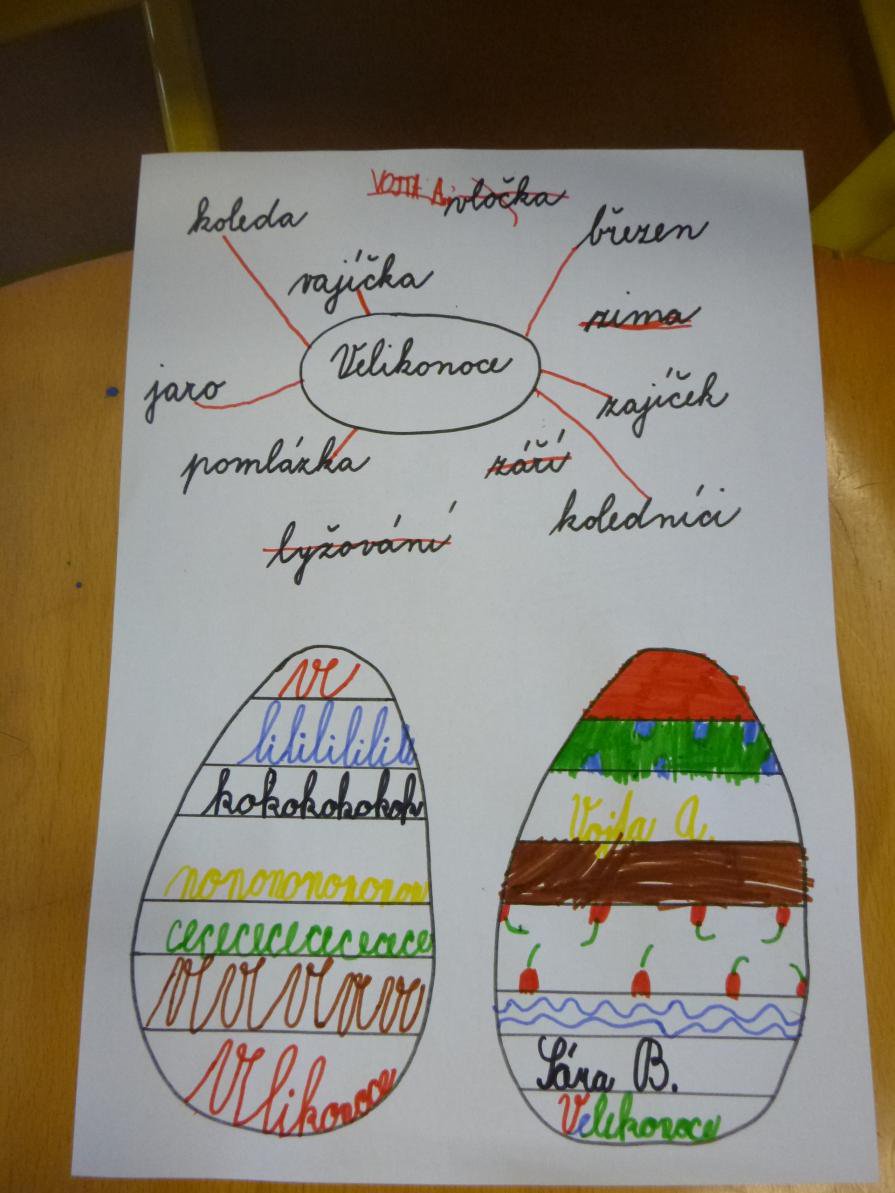 VOJTA A. vločka
koleda
březen
vajíčka
zima
Velikonoce
jaro
zajíček
pomlázka
září
koledníci
lyžování
ve
lililililili
kokokokokok
nononononono
cecececececece
Ve Ve Ve Ve Ve
Velikonoce
Vojta A.
Sára B.
Velekonoce